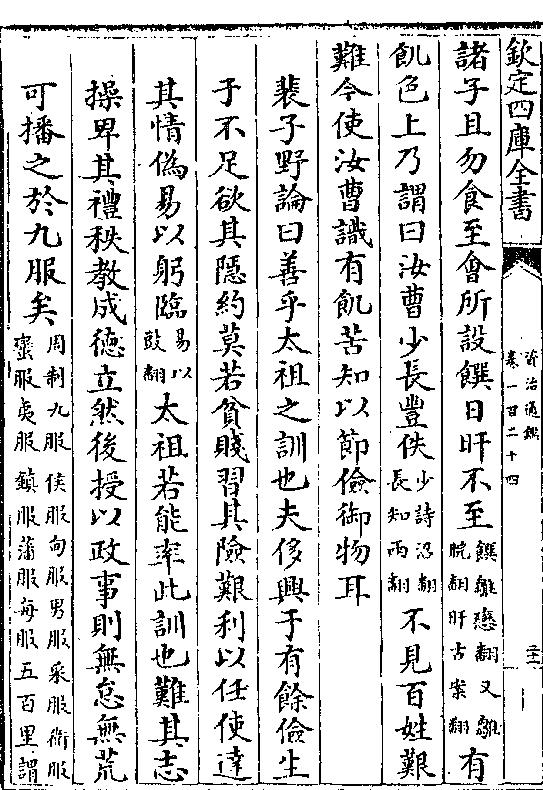 欽定四庫全書
資治通鑑
卷一百二十四
諸子且勿食至會所設饌日旰不至饌雛戀翻又雛
睆翻旰古案翻有
飢色上乃謂曰汝曹少長豐佚少詩沼翻
長知兩翻不見百姓艱
難今使汝曹識有飢苦知以節儉御物耳
裴子野論曰善乎太祖之訓也夫侈興于有餘儉生
于不足欲其隱約莫若貧賤習其險艱利以任使達
其情偽易以躬臨易以
豉翻太祖若能率此訓也難其志
操卑其禮秩教成德立然後授以政事則無怠無荒
可播之於九服矣周制九服侯服甸服男服采服衛服
蠻服夷服鎮服藩服每服五百里謂